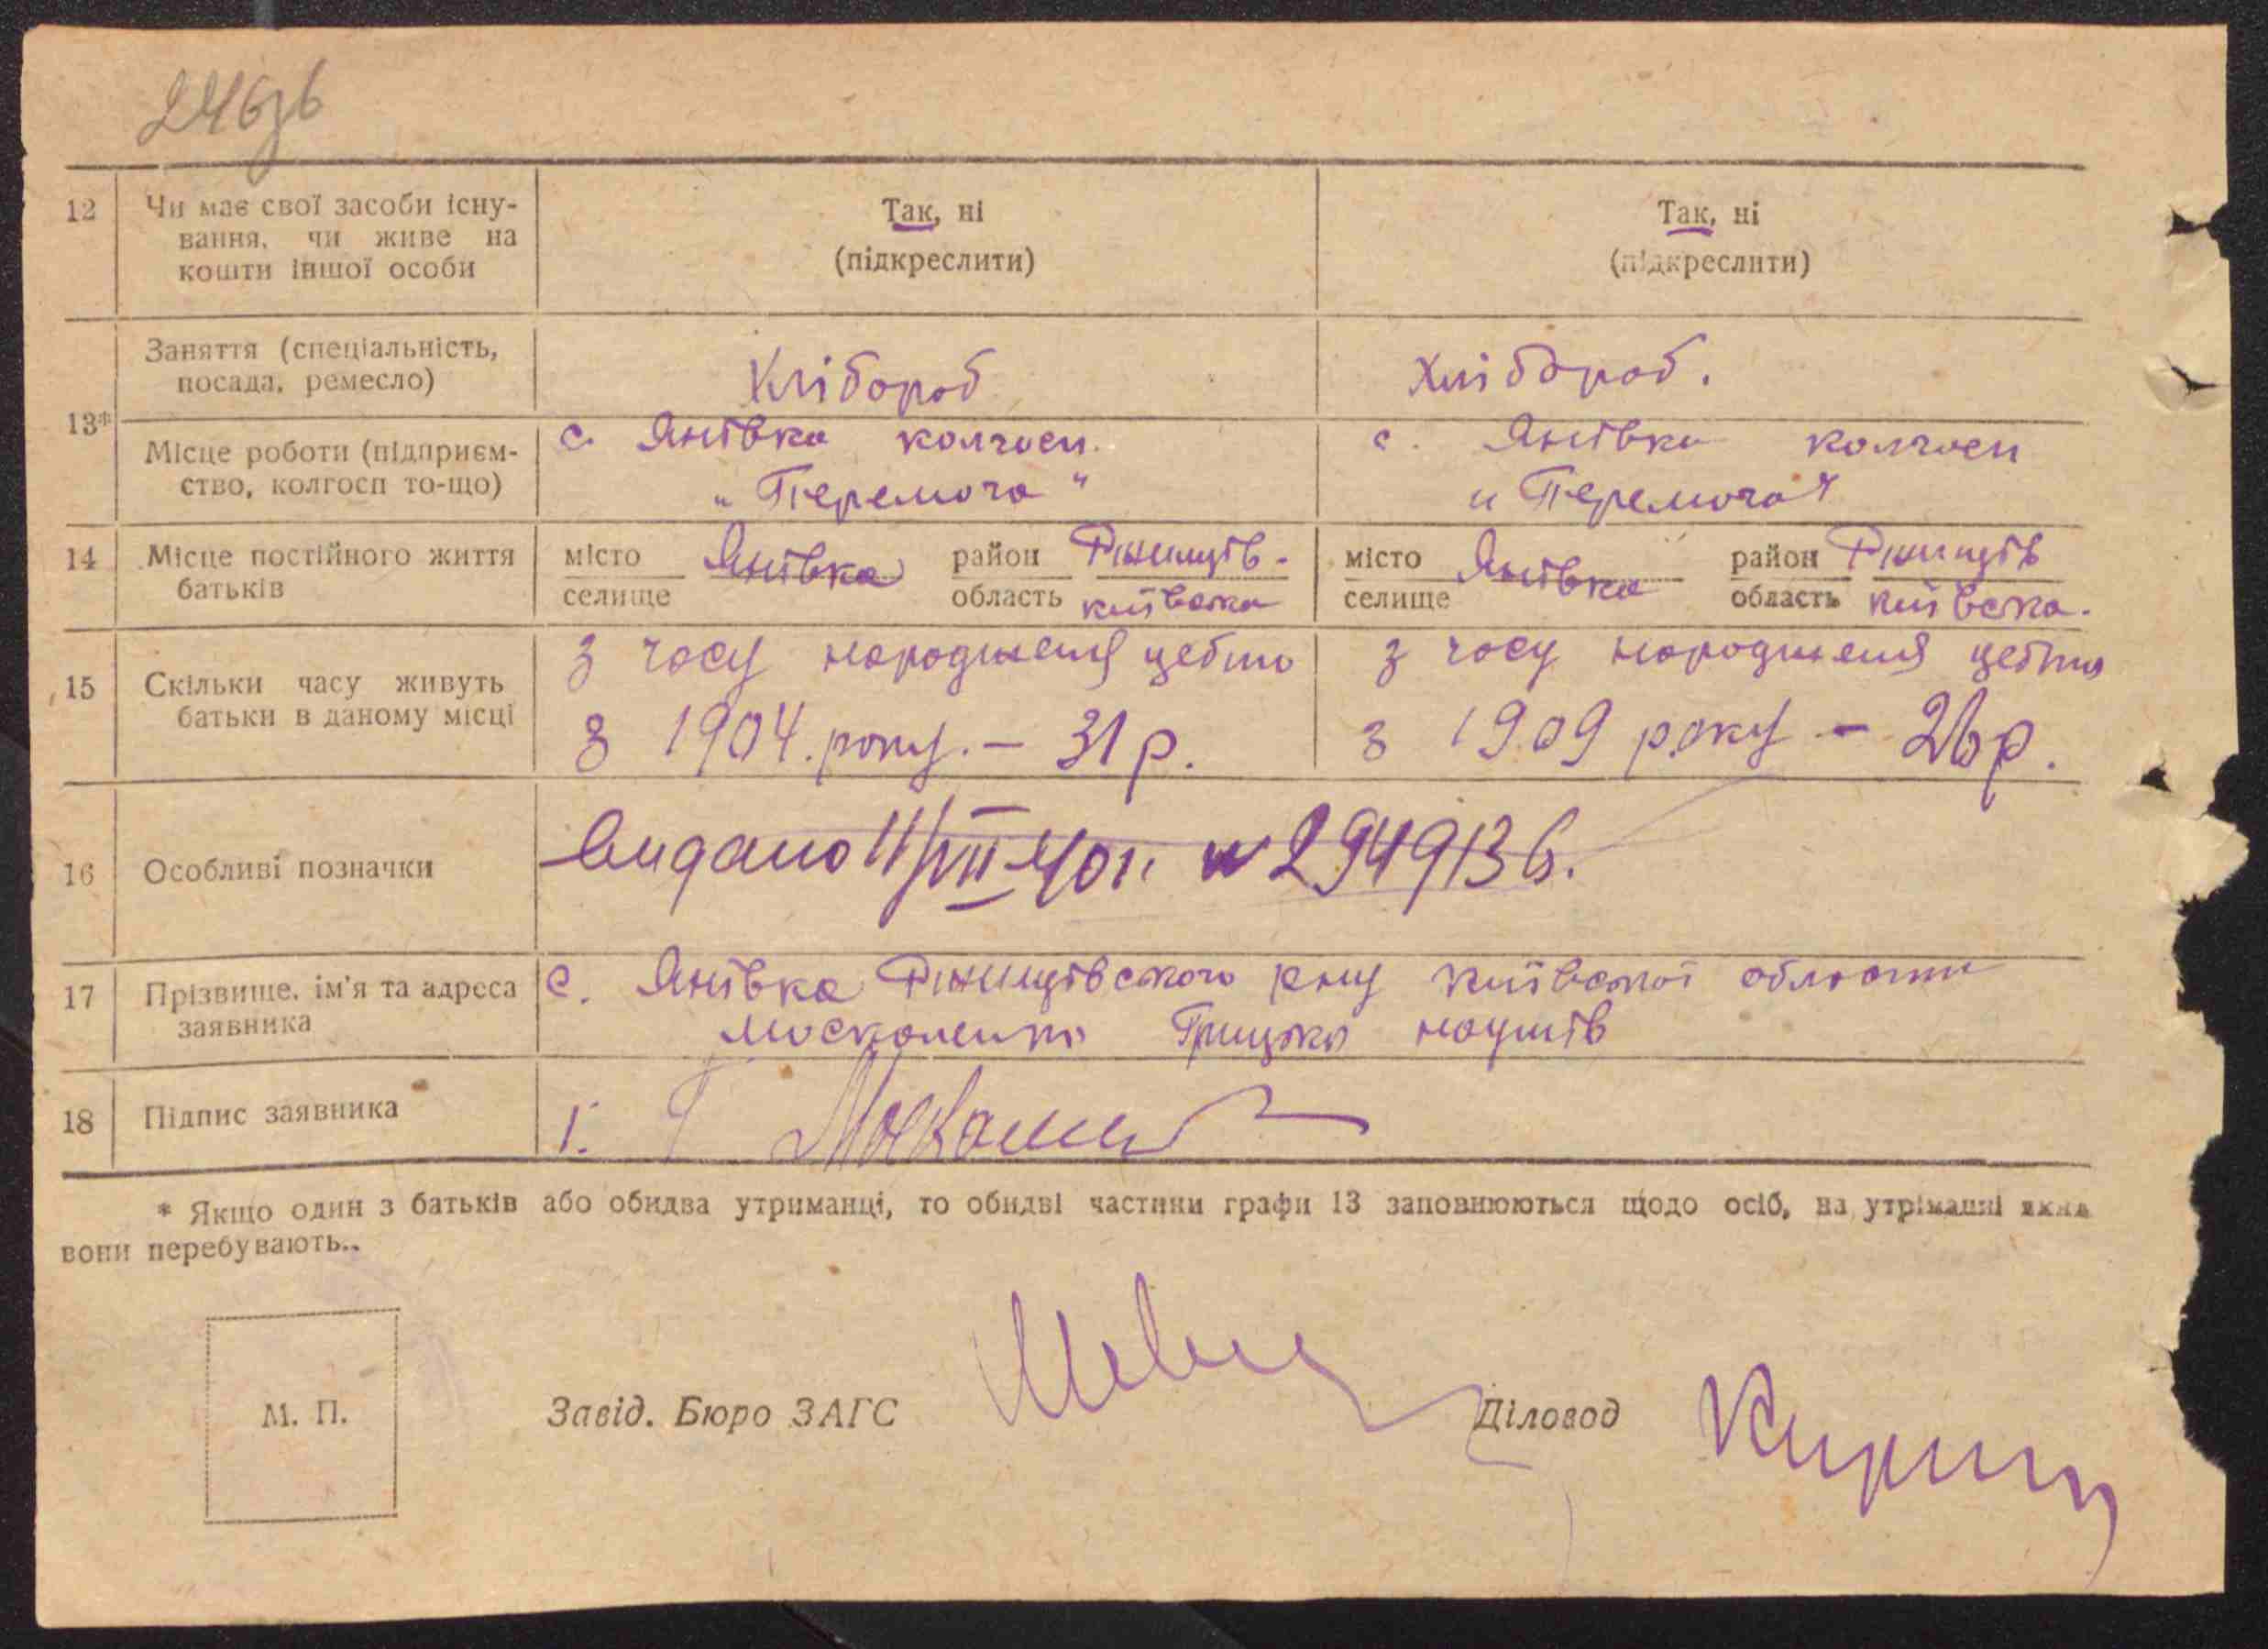 246зв
12 Чи має свої засоби існу-
вання, чи живе на
кошти іншої особи
Так, ні
(підкреслити)
Так, ні
(підкреслити)
13*
Заняття (спеціальність,
посада, ремесло)
Хлібороб
Хлібороб.
Місце роботи (підприєм-
ство, колгосп то-що)
с. Янівка колгосп
„Перемога“
с. Янівка колгосп
„Перемога“
14 Місце постійного життя
батьків
місто
селище
Янівка
район Ржищів-
область київська
місто
селище
Янівка
район Ржищів
область київська.
15 Скільки часу живуть
батьки в даному місці
з часу народження цебто
з 1904. року. – 31 р.
з часу народження цебто
з 1909 року – 26 р.
16 Особливі позначки
видано 11/VII 40 р. № 2949136.
17 Прізвище, ім'я та адреса
заявника
с. Янівка Ржищівського р-ну київської області
москаленко Грицько
18 Підпис заявника
Москален
* Якщо один з батьків або обидва утриманці, то обидві частини графи 13 заповнюються щодо осіб, на утріманні яких
вони перебувають..
М. П.
Завід. Бюро ЗАГС
Діловод